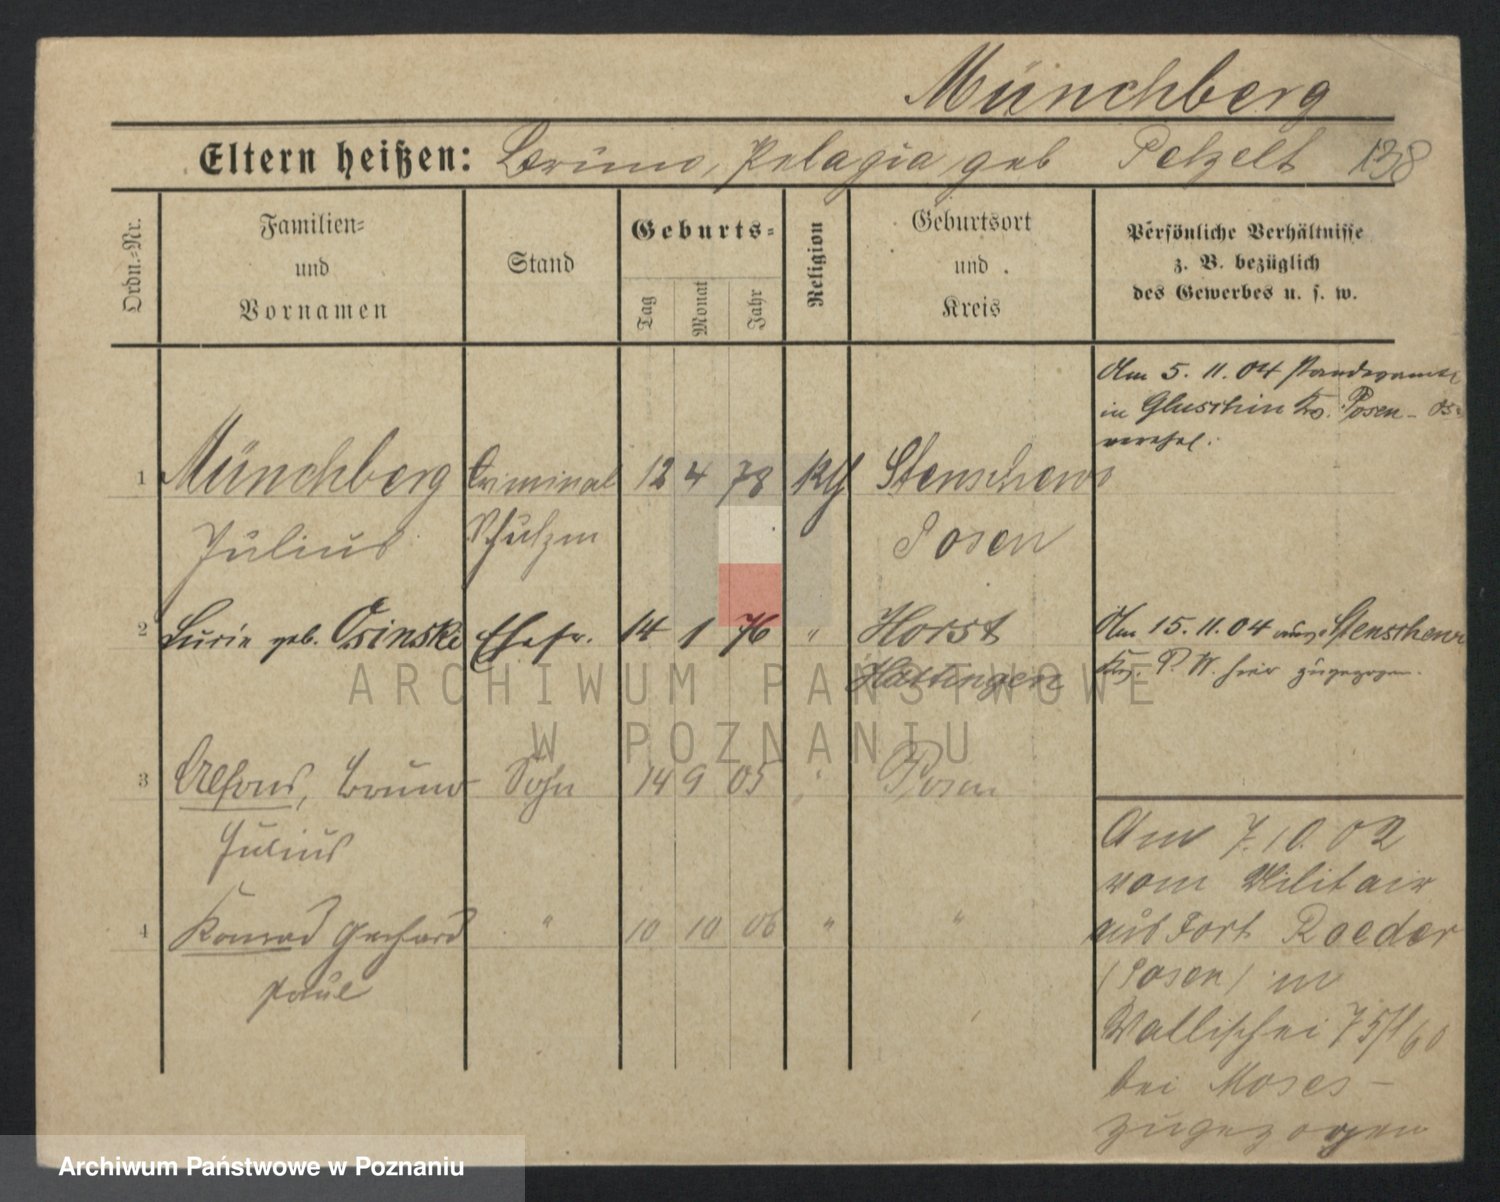 Münchberg
Eltern heißen: Bruno, Pelagia geb Petzelt 138
Ordn.-Nr.
Familien-
und
Vornamen
Stand
Geburts-
Tag
Monat
Jahr
Religion
Geburtsort
und
Kreis
Persönliche Verhältnisse
z. B. bezüglich
des Gewerbes u. s. w.
Am 5. 11. 04 Standesamte
in Gluschin Kr. Posen-Os
verehel.
1 Münchberg Criminal 12 4 78 Kth Stenschewo
Julius Schutzm Posen
2 geb. Osinski Ehefr. 14 1 76 " Horst
Hattingen
Am 15. 11. 04 Stenschewo
Krs. P. W. hier zugezogen.
3 Alfons, Bruno Sohn 14 9 05 " Posen
Julius
4 Konrad Gerhard " 10 10 06 " "
Paul
Am 7. 10. 02
vom Militair
aus Fort Roeder
(Posen) in
Wallischei
bei Moses-
zugezogen
ARCHIWUM PAŃSTWOWE
W POZNANIU
Archiwum Państwowe w Poznaniu